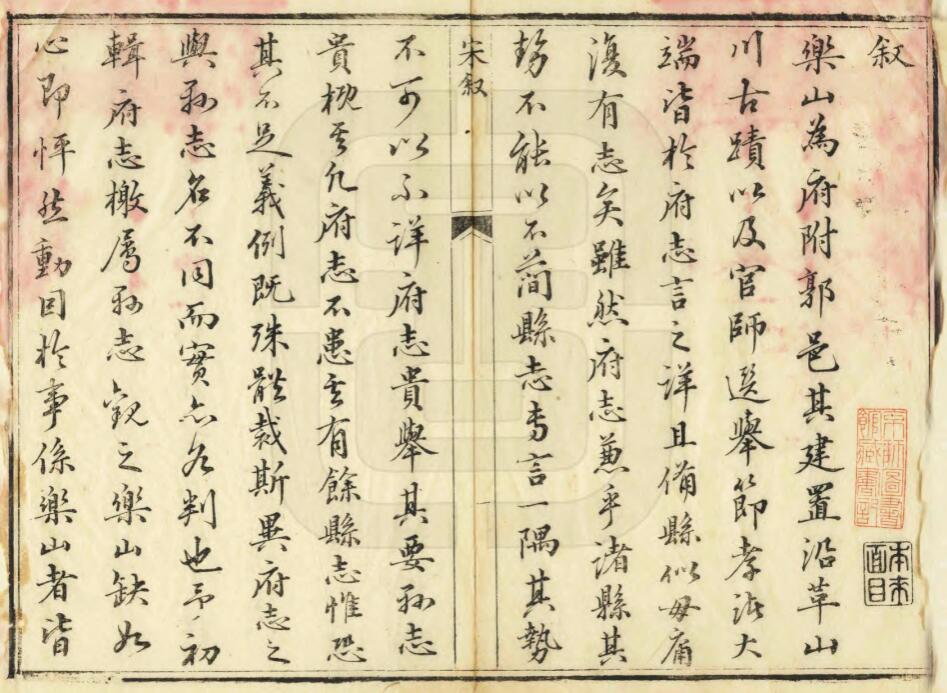 叙
樂山為府附郭邑其建置沿革山
川古蹟以及官師選舉節孝諸大
端皆於府志言之詳且備縣似毋庸
復有志矣雖然府志兼乎諸縣其
勢不能以不簡縣志專言一隅其勢
宋叙
不可以不詳府志貴舉其要縣志
貴概其凡府志不患其有餘縣志惟恐
其不足義例既殊體裁斯異府志之
與縣志名不同而實亦各判也予初
輯府志檄屬縣志觀之樂山缺如
心即怦然動因於事係樂山者皆
本來面目